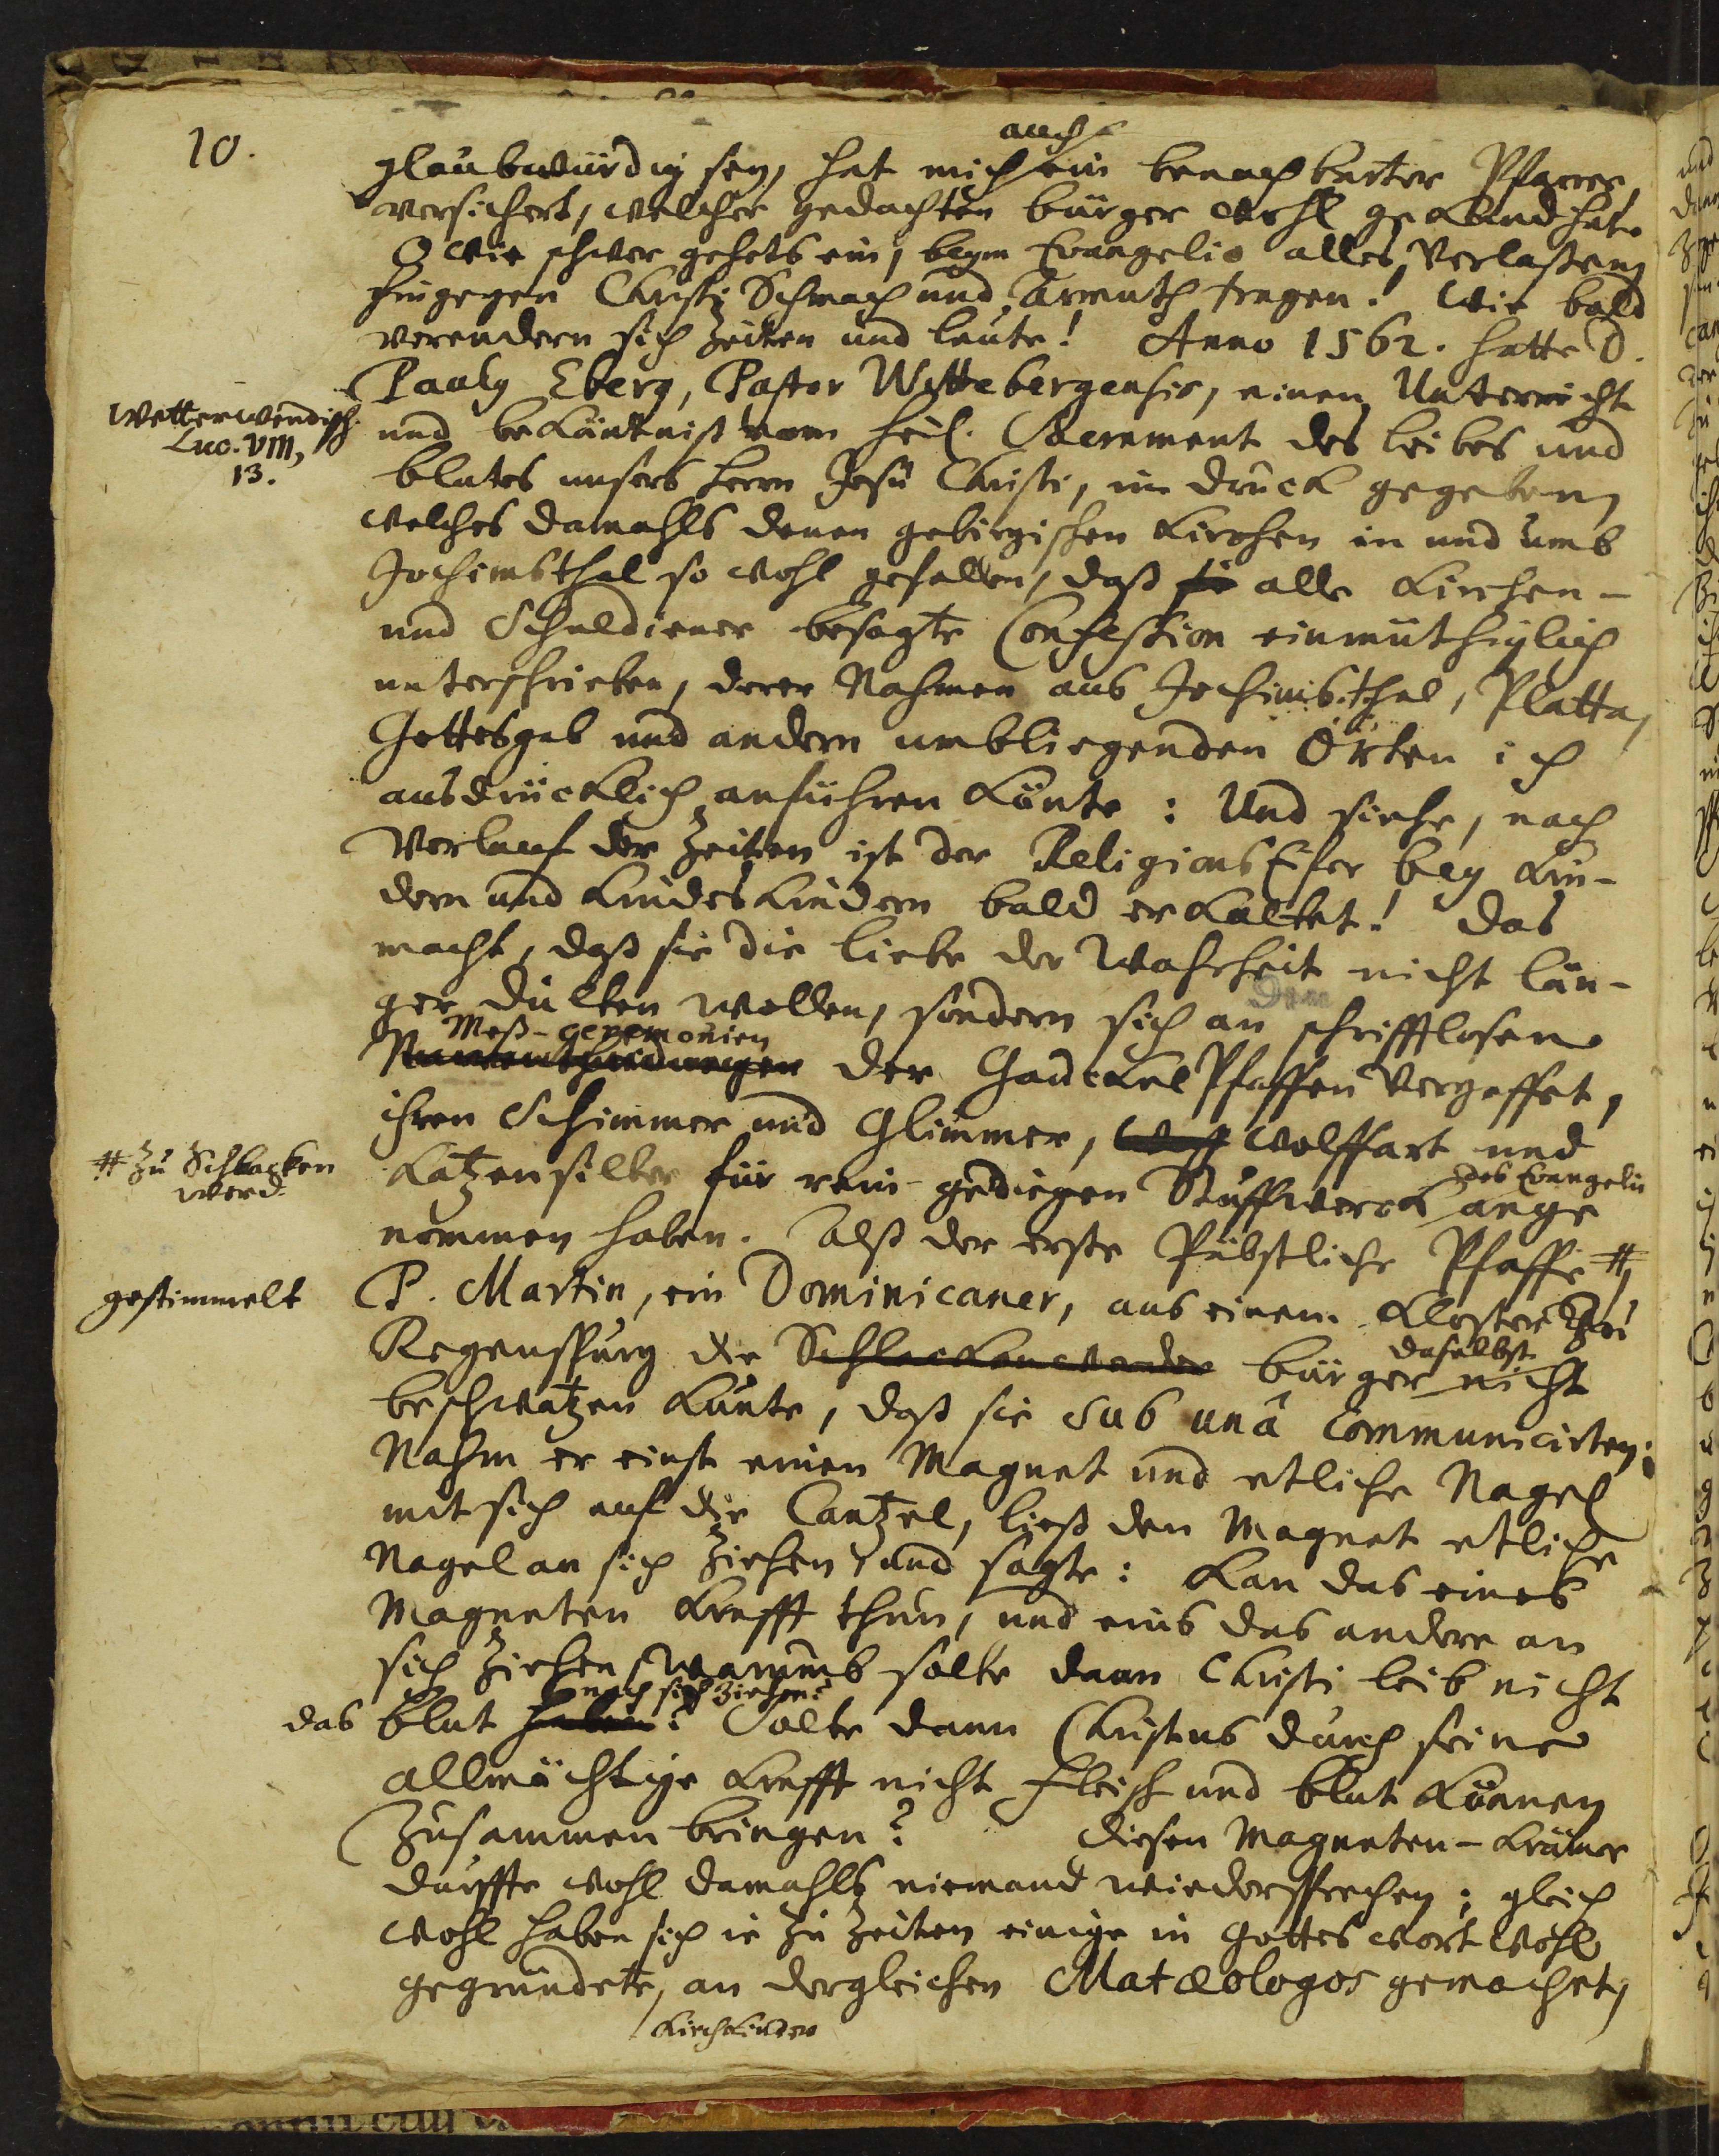 10.
auch
glaubwürdig sey, hat mich ein benachbarter Pfarrer
versichert, welcher gedachten bürger wohl gekand hat.
O wie schwer gehets ein, beym Evangelio alles verlaßen,
hingegen Christi Schmach und Armuth tragen! Wie bald
verendern sich Zeiten und leute! Anno 1562. hatte D.
Pauly Eberg, Pastor Wittebergensis, einen Unterricht
Wetterwendisch.
Luc. VIII,
13.
und bekäntniß vom heil. Sacrament des leibes und
blutes unsers herrn Jesu Christi, in druck gegeben,
welches damahls denen gebirgischen Kirchen in und umb
Jochimsthal so wohl gefallen, daß sie alle Kirchen-
und Schuldiener besagte Confession einmüthiglich
unterschrieben, derer Nahmen aus Jochimsthal, Platta,
Gottesgab und andern umbliegenden Örten ich
ausdrücklich anführen könte: Und siehe, nach
Verlauf der Zeiten ist der ReligionsEifer bey Kin-
dern und Kindeskindern bald erkaltet! Das
macht, daß sie die liebe der Wahrheit nicht län-
ger dulten wollen, sondern sich an schrifftlosen
Meß-Ceremonien
der GauckelPfaffen vergaffet,
ihren Schimmer und Glimmer, Wolffart und
# zu Schlacken
werd.
Katzensilber für rein-gediegen Stuffwerck ange
des Evangelii
nommen haben. Alß der erste Päbstliche Pfaffe #,
gestimmelt
P. Martin, ein Dominicaner, aus einem Kloster zu
Regenspurg die Schlackenwerder bürger nicht
daselbst
beschwatzen kunte, daß sie sub unâ communicirten;
Nahm er einst einen Magnet und etliche Nagel
mit sich auf die Cantzel, ließ den Magnet etliche
Nagel an sich ziehen und sagte: Kan das eines
Magneten Krafft thun, und eins das andere an
sich ziehen, warumb solte dann Christi leib nicht
nach sich ziehen?
das blut haben? Solte dann Christus durch seine
allmächtige Krafft nicht fleisch und blut können
zusammen bringen? Diesen Magneten-Krämer
durffte wohl damahls niemand wiedersprechen; gleich
wohl haben sich ie zu zeiten einige in Gottes wort wohl
gegründete, an dergleichen Matæologos gemachet,
Kirchkinder